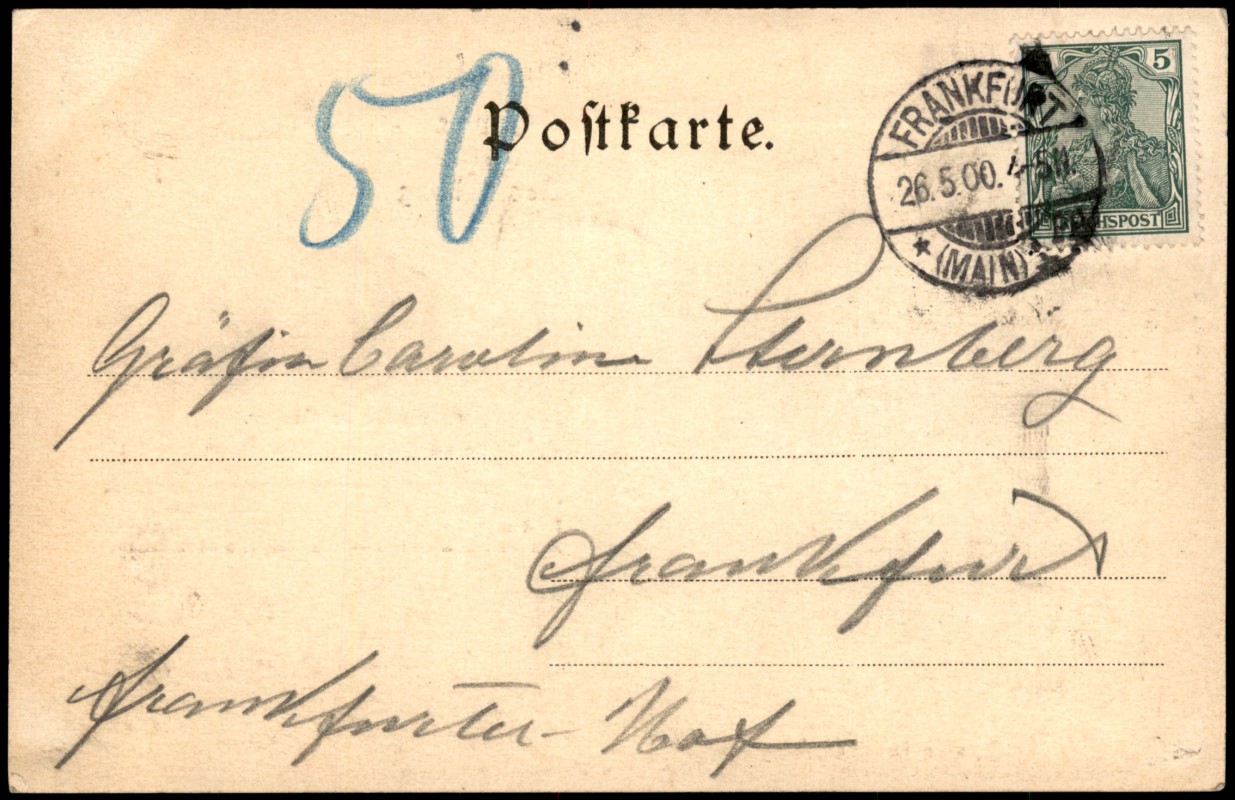 50
Postkarte.
5
REICHSPOST
FRANKFURT
26.5.00. 4-5N.
* (MAIN) *
Gräfin Caroline Sternberg
Frankfurt
Frankfurter-Hof